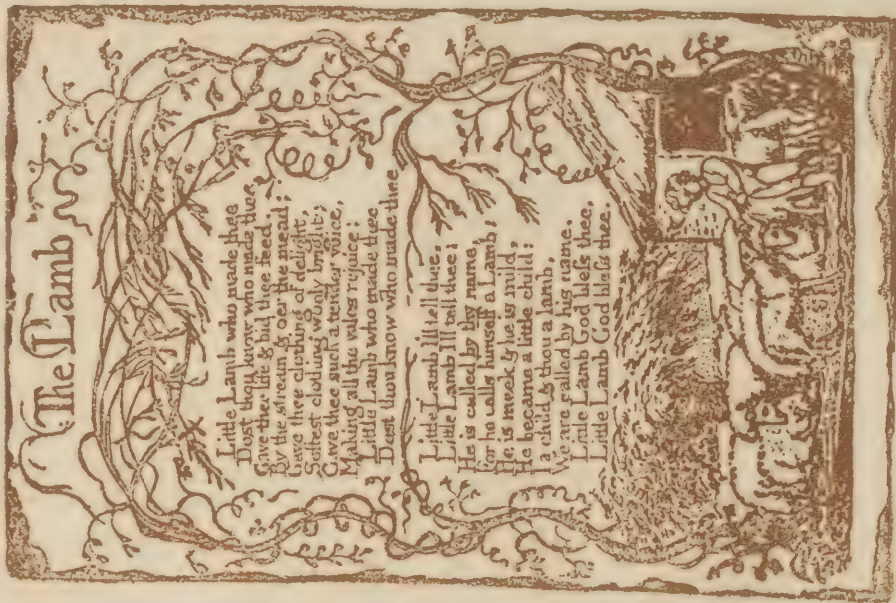 The Lamb
Little Lamb who made thee
Dost thou know who made thee
Gave thee life & bid thee feed,
By the stream & o'er the mead;
Gave thee clothing of delight,
Softest clothing wooly bright;
Gave thee such a tender voice,
Making all the vales rejoice:
Little Lamb who made thee
Dost thou know who made thee
Little Lamb I'll tell thee,
Little Lamb I'll tell thee;
He is called by thy name,
For he calls himself a Lamb:
He is meek & he is mild,
He became a little child:
I a child & thou a lamb,
We are called by his name.
Little Lamb God bleſs thee,
Little Lamb God bleſs thee.